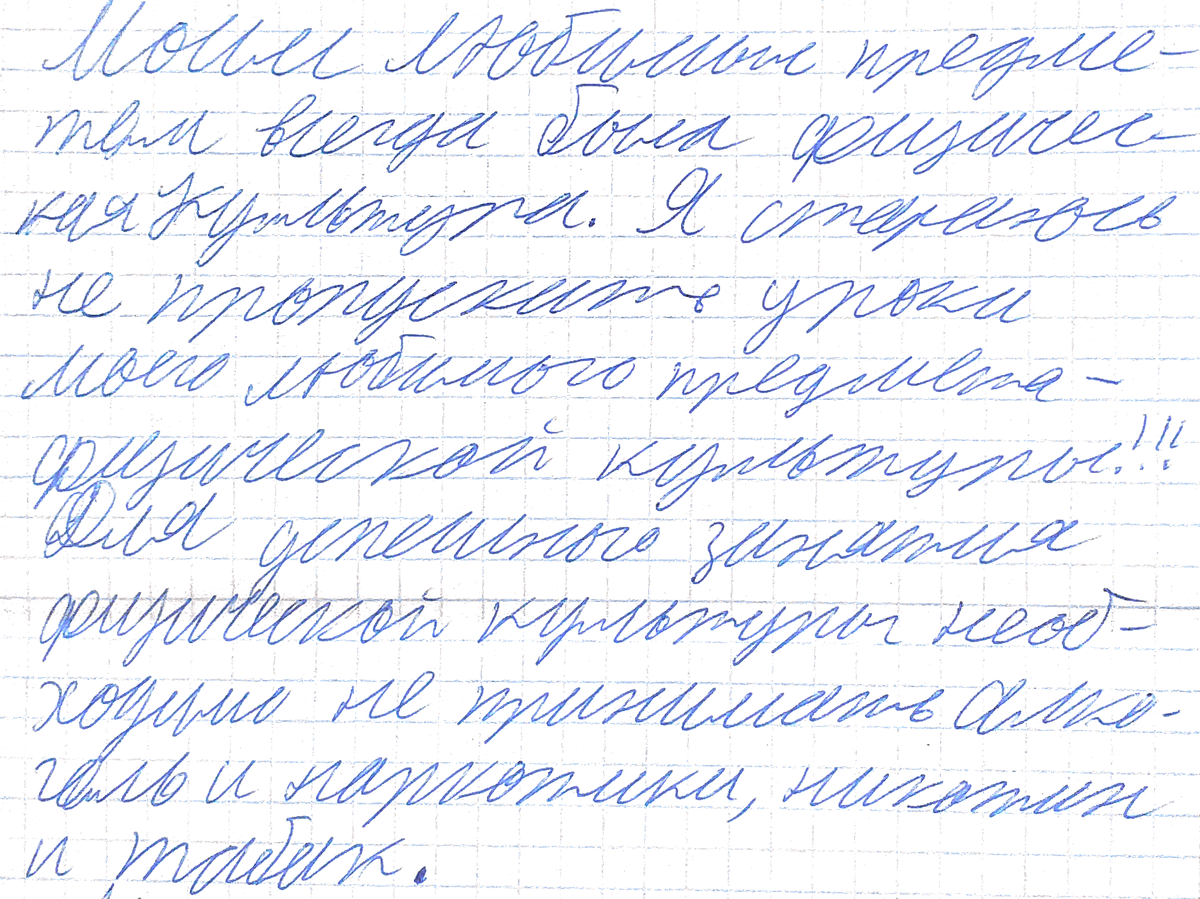 Моим любимым предме-
том всегда была физичес-
кая культура. Я стараюсь
не пропускать уроки
моего любимого предмета-
физической культуры!!!
Для успешного занятия
физической культуры необ-
ходимо не принимать алко-
голь и наркотики, никотин
и табак.